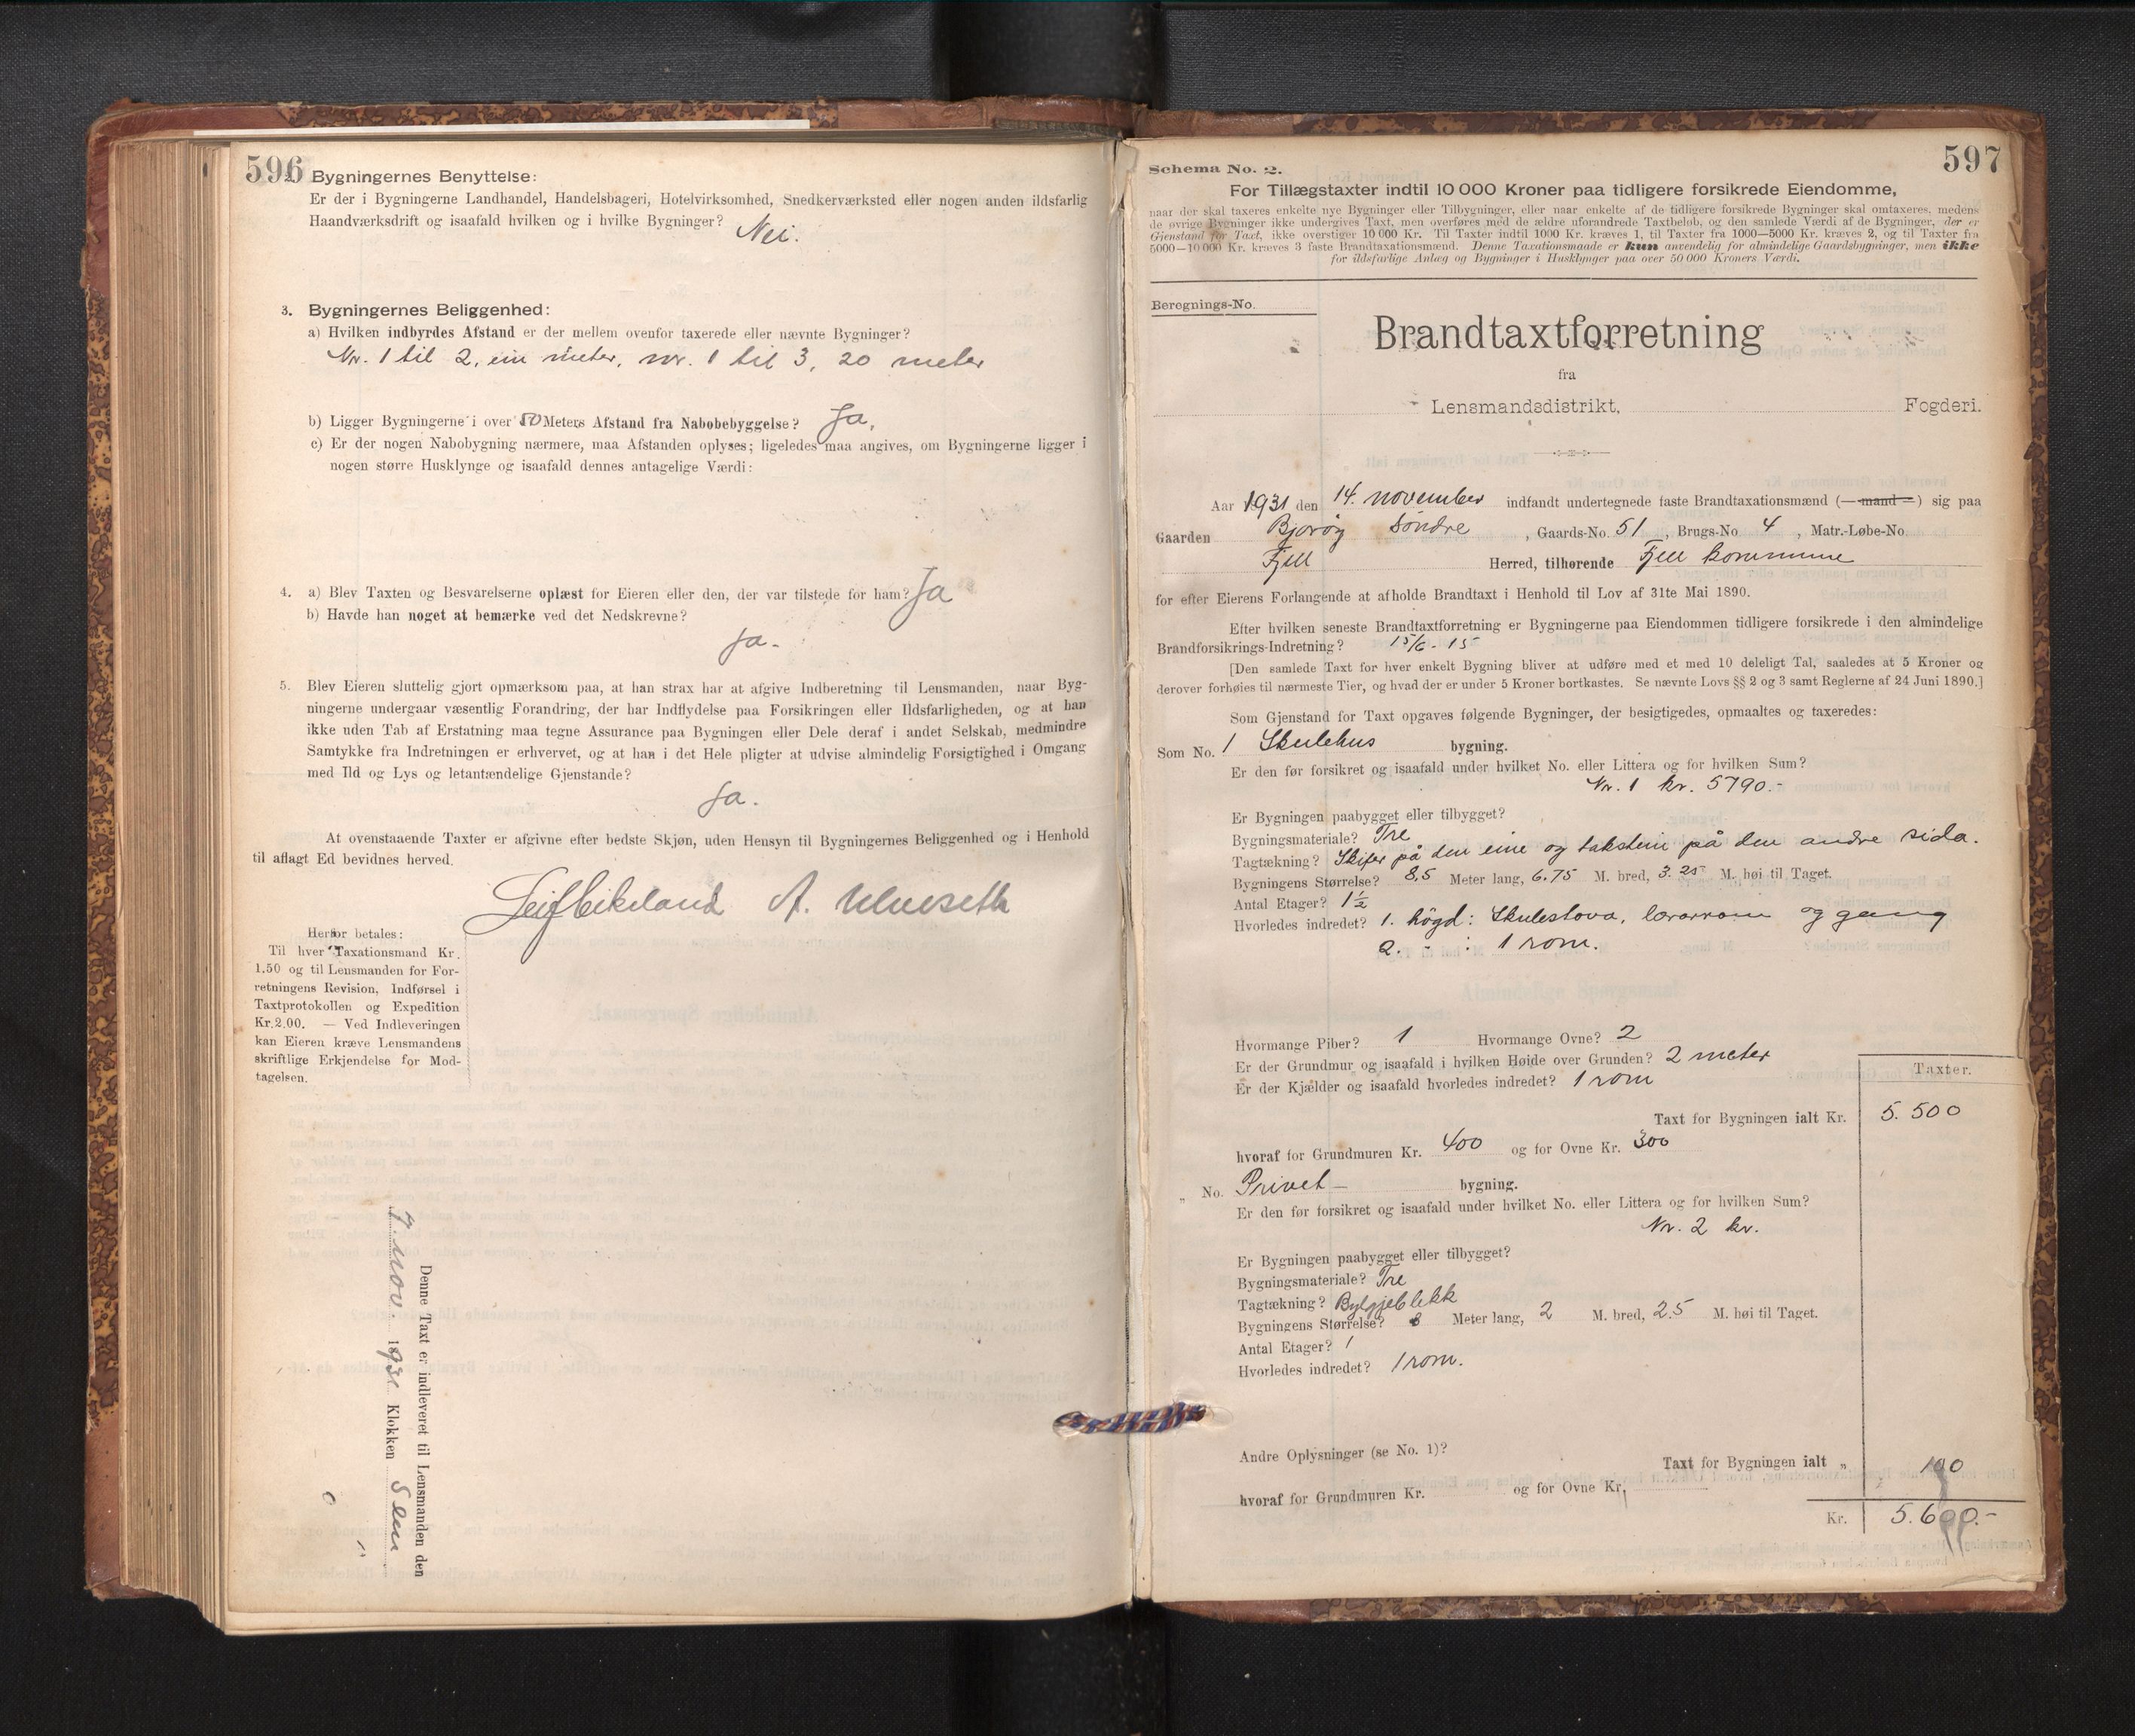 596
2. Bygningernes Benyttelse:
Er der i Bygningerne Landhandel, Handelsbageri, Hotelvirksomhed, Snedkerværksted eller nogen anden ildsfarlig
Haandværksdrift og isaafald hvilken og i hvilke Bygninger? Nei.
3. Bygningernes Beliggenhed:
a) Hvilken indbyrdes Afstand er der mellem ovenfor taxerede eller nævnte Bygninger?
Nr. 1 til 2, ein meter, nr. 1 til 3, 20 meter
b) Ligger Bygningerne i over 50 Meters Afstand fra Nabobebyggelse? Ja,
c) Er der nogen Nabobygning nærmere, maa Afstanden oplyses; ligeledes maa angives, om Bygningerne ligger i
nogen større Husklynge og isaafald dennes antagelige Værdi:
4. a) Blev Taxten og Besvarelserne oplæst for Eieren eller den, der var tilstede for ham? Ja
b) Havde han noget at bemærke ved det Nedskrevne?
Ja.
5. Blev Eieren sluttelig gjort opmærksom paa, at han strax har at afgive Indberetning til Lensmanden, naar Byg-
ningerne undergaar væsentlig Forandring, der har Indflydelse paa Forsikringen eller Ildsfarligheden, og at han
ikke uden Tab af Erstatning maa tegne Assurance paa Bygningen eller Dele deraf i andet Selskab, medmindre
Samtykke fra Indretningen er erhvervet, og at han i det Hele pligter at udvise almindelig Forsigtighed i Omgang
med Ild og Lys og letantændelige Gjenstande?
Ja.
At ovenstaaende Taxter er afgivne efter bedste Skjøn, uden Hensyn til Bygningernes Beliggenhed og i Henhold
til aflagt Ed bevidnes herved.
Leif Eikeland A. Ulveseth
Herfor betales:
Til hver Taxationsmand Kr.
1.50 og til Lensmanden for For-
retningens Revision, Indførsel i
Taxtprotokollen og Expedition
Kr. 2.00. — Ved Indleveringen
kan Eieren kræve Lensmandens
skriftlige Erkjendelse for Mod-
tagelsen.
Denne Taxt er indleveret til Lensmanden den
7. nov 1931 Klokken 5 em
597
Schema No. 2.
For Tillægstaxter indtil 10 000 Kroner paa tidligere forsikrede Eiendomme,
naar der skal taxeres enkelte nye Bygninger eller Tilbygninger, eller naar enkelte af de tidligere forsikrede Bygninger skal omtaxeres, medens
de øvrige Bygninger ikke undergives Taxt, men overføres med de ældre uforandrede Taxtbeløb, og den samlede Værdi af de Bygninger, der er
Gjenstand for Taxt, ikke overstiger 10 000 Kr. Til Taxter indtil 1000 Kr. kræves 1, til Taxter fra 1000—5000 Kr. kræves 2, og til Taxter fra
5000—10 000 Kr. kræves 3 faste Brandtaxationsmænd. Denne Taxationsmaade er kun anvendelig for almindelige Gaardsbygninger, men ikke
for ildsfarlige Anlæg og Bygninger i Husklynger paa over 50 000 Kroners Værdi.
Beregnings-No.
Brandtaxtforretning
fra
Lensmandsdistrikt, Fogderi.
Aar 1931 den 14. november indfandt undertegnede faste Brandtaxationsmænd (— mand —) sig paa
Gaarden Bjorøy Søndre, Gaards-No. 51, Brugs-No 4, Matr.-Løbe-No.
Fjell Herred, tilhørende Fjell kommune
for efter Eierens Forlangende at afholde Brandtaxt i Henhold til Lov af 31te Mai 1890.
Efter hvilken seneste Brandtaxtforretning er Bygningerne paa Eiendommen tidligere forsikrede i den almindelige
Brandforsikrings-Indretning? 15/6 - 15
[Den samlede Taxt for hver enkelt Bygning bliver at udføre med et med 10 deleligt Tal, saaledes at 5 Kroner og
derover forhøies til nærmeste Tier, og hvad der er under 5 Kroner bortkastes. Se nævnte Lovs §§ 2 og 3 samt Reglerne af 24 Juni 1890.]
Som Gjenstand for Taxt opgaves følgende Bygninger, der besigtigedes, opmaaltes og taxeredes:
Som No. 1 Skulehus bygning.
Er den før forsikret og isaafald under hvilket No. eller Littera og for hvilken Sum?
Nr. 1 kr. 5790.-
Er Bygningen paabygget eller tilbygget?
Bygningsmateriale? Tre
Tagtækning? Skifer på den eine og takstein på den andre sida.
Bygningens Størrelse? 8,5 Meter lang, 6.75 M. bred, 3.25 M. høi til Taget.
Antal Etager? 1½
Hvorledes indredet? 1. högd: Skulestova, lærarrom og gang
2. - : 1 rom.
Hvormange Piber? 1 Hvormange Ovne? 2
Er der Grundmur og isaafald i hvilken Høide over Grunden? 2 meter
Er der Kjælder og isaafald hvorledes indredet? 1 rom
Taxter.
Taxt for Bygningen ialt Kr. 5.500
hvoraf for Grundmuren Kr. 400 og for Ovne Kr. 300
„ No. Privet- bygning.
Er den før forsikret og isaafald under hvilket No. eller Littera og for hvilken Sum?
Nr. 2 kr.
Er Bygningen paabygget eller tilbygget?
Bygningsmateriale? Tre
Tagtækning? Bylgjeblekk
Bygningens Størrelse? 3 Meter lang, 2 M. bred, 2.5 M. høi til Taget.
Antal Etager? 1
Hvorledes indredet? 1 rom.
Andre Oplysninger (se No. 1)?
Taxt for Bygningen ialt „ 100
hvoraf for Grundmuren Kr. og for Ovne Kr.
Kr. 5.600.-